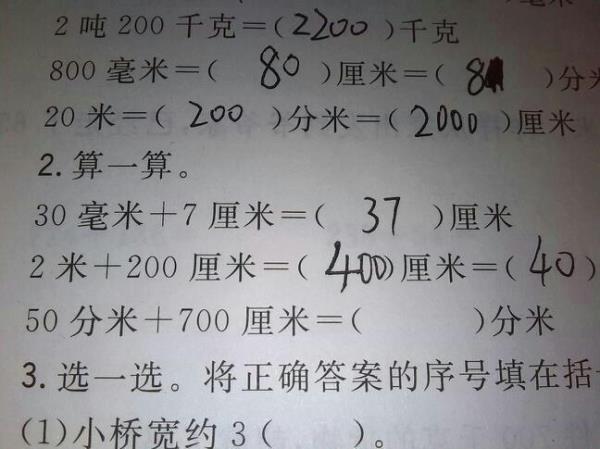 2 吨 200 千克=(2200)千克
800 毫米=( 80 )厘米=( 8 )分米
20 米=( 200 )分米=( 2000 )厘米
2. 算一算。
30 毫米+7 厘米=( 37 )厘米
2 米+200 厘米=( 400)厘米=( 40 )
50 分米+700 厘米=( )分米
3. 选一选。将正确答案的序号填在括
(1)小桥宽约 3( )。